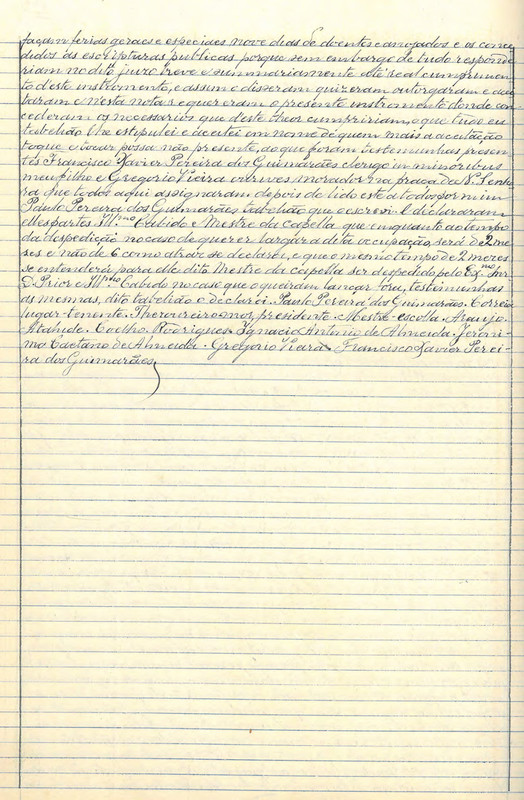 façam ferias geraes e especiaes nove dias de doentes e anojados e os conce-
didos ás escripturas publicas porque sem embargo de tudo responde-
riam no dito juizo breve e summariamente até real cumprimen-
to d'este instromento, e assim o disseram quizeram outorgaram e acei-
taram e n'esta nota e quereram o presente instromento donde con-
cederam os necessarios que d'este theor cumpririam, o que tudo eu
tabelião lhe estipulei e aceitei em nome de quem mais a aceitação
toque e tocar possa não presente, ao que foram testemunhas presen-
tes Francisco Xavier Pereira dos Guimarães clerigo in minoribus
meu filho e Gregorio Vieira ourives morador na praça da N. Senho-
ra que todos aqui assignaram depois de lido este a todos por mim
Paulo Pereira dos Guimarães tabelião que o escrevi. E declararam
elles partes Ill.mo Cabido e Mestre da capella que enquanto ao tempo
da despedição no caso de querer largar a dita occupação, será de 2 me-
ses e não de 6 como atraz se declarei, e que o mesmo tempo de 2 meses
se entenderá para elle dito Mestre da capella ser despedido pelo Ex.mo Snr
D. Prior e Ill.mo Cabido no caso que o queiram lançar fora, testiminhas
as mesmas, dito tabelião o declarei. Paulo Pereira dos Guimarães. Correia
lugar-tenente. Thezoureiro-mor, presidente. Mestre-escolla. Araujo.
Athahide. Coelho. Rodrigues. Ignacio Antonio de Almeida. Jeroni-
mo Caetano de Almeida. Gregorio Vieira. Francisco Xavier Perei-
ra dos Guimarães